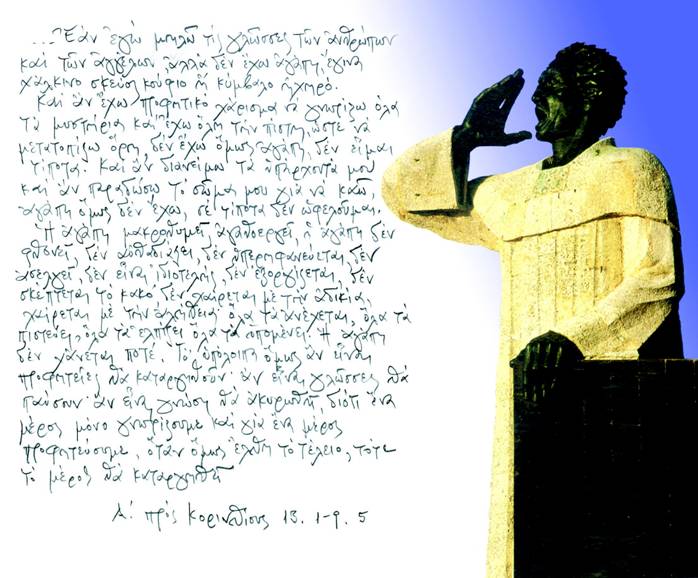 ... Ἐάν ἐγώ μιλῶ τίς γλῶσσες τῶν ἀνθρώπων
καί τῶν ἀγγέλων ἀλλά δέν ἔχω ἀγάπη, ἔγινα
χάλκινο σκεῦος κούφιο ἤ κύμβαλο ἠχηρό.
Καί ἄν ἔχω προφητικό χάρισμα νά γνωρίζω ὅλα
τά μυστήρια καί ἔχω ὅλη τήν πίστη, ὥστε νά
μετατοπίζω ὄρη, δέν ἔχω ὅμως ἀγάπη, δέν εἶμαι
τίποτα. Καί ἄν διανείμω τά ὑπάρχοντά μου
καί ἄν παραδώσω τό σῶμα μου γιά νά καῶ,
ἀγάπη ὅμως δέν ἔχω, σέ τίποτα δέν ὠφελοῦμαι.
Ἡ ἀγάπη μακροθυμεῖ, ἀγαθοεργεῖ, ἡ ἀγάπη δέν
φθονεῖ, δέν αὐθαδιάζει, δέν ὑπερηφανεύεται, δέν
ἀσελγεῖ, δέν εἶναι ἰδιοτελής, δέν ἐξοργίζεται, δέν
σκέπτεται τό κακό, δέν χαίρεται μέ τήν ἀδικία,
χαίρεται μέ τήν ἀλήθεια· ὅλα τά ἀνέχεται, ὅλα τά
πιστεύει, ὅλα τά ἐλπίζει ὅλα τά ὑπομένει. Ἡ ἀγάπη
δέν χάνεται ποτέ. Τά ὑπόλοιπα ὅμως ἄν εἶναι
προφητεῖες θά καταργηθοῦν· ἄν εἶναι γλῶσσες θά
παύσουν· ἄν εἶναι γνώση θά ἀκυρωθεῖ, διότι ἕνα
μέρος μόνο γνωρίζουμε καί γιά ἕνα μέρος
προφητεύουμε, ὅταν ὅμως ἔλθη τό τέλειο, τότε
τό μέρος θά καταργηθεῖ
Α! πρός Κορινθίους 13. 1-9. 5